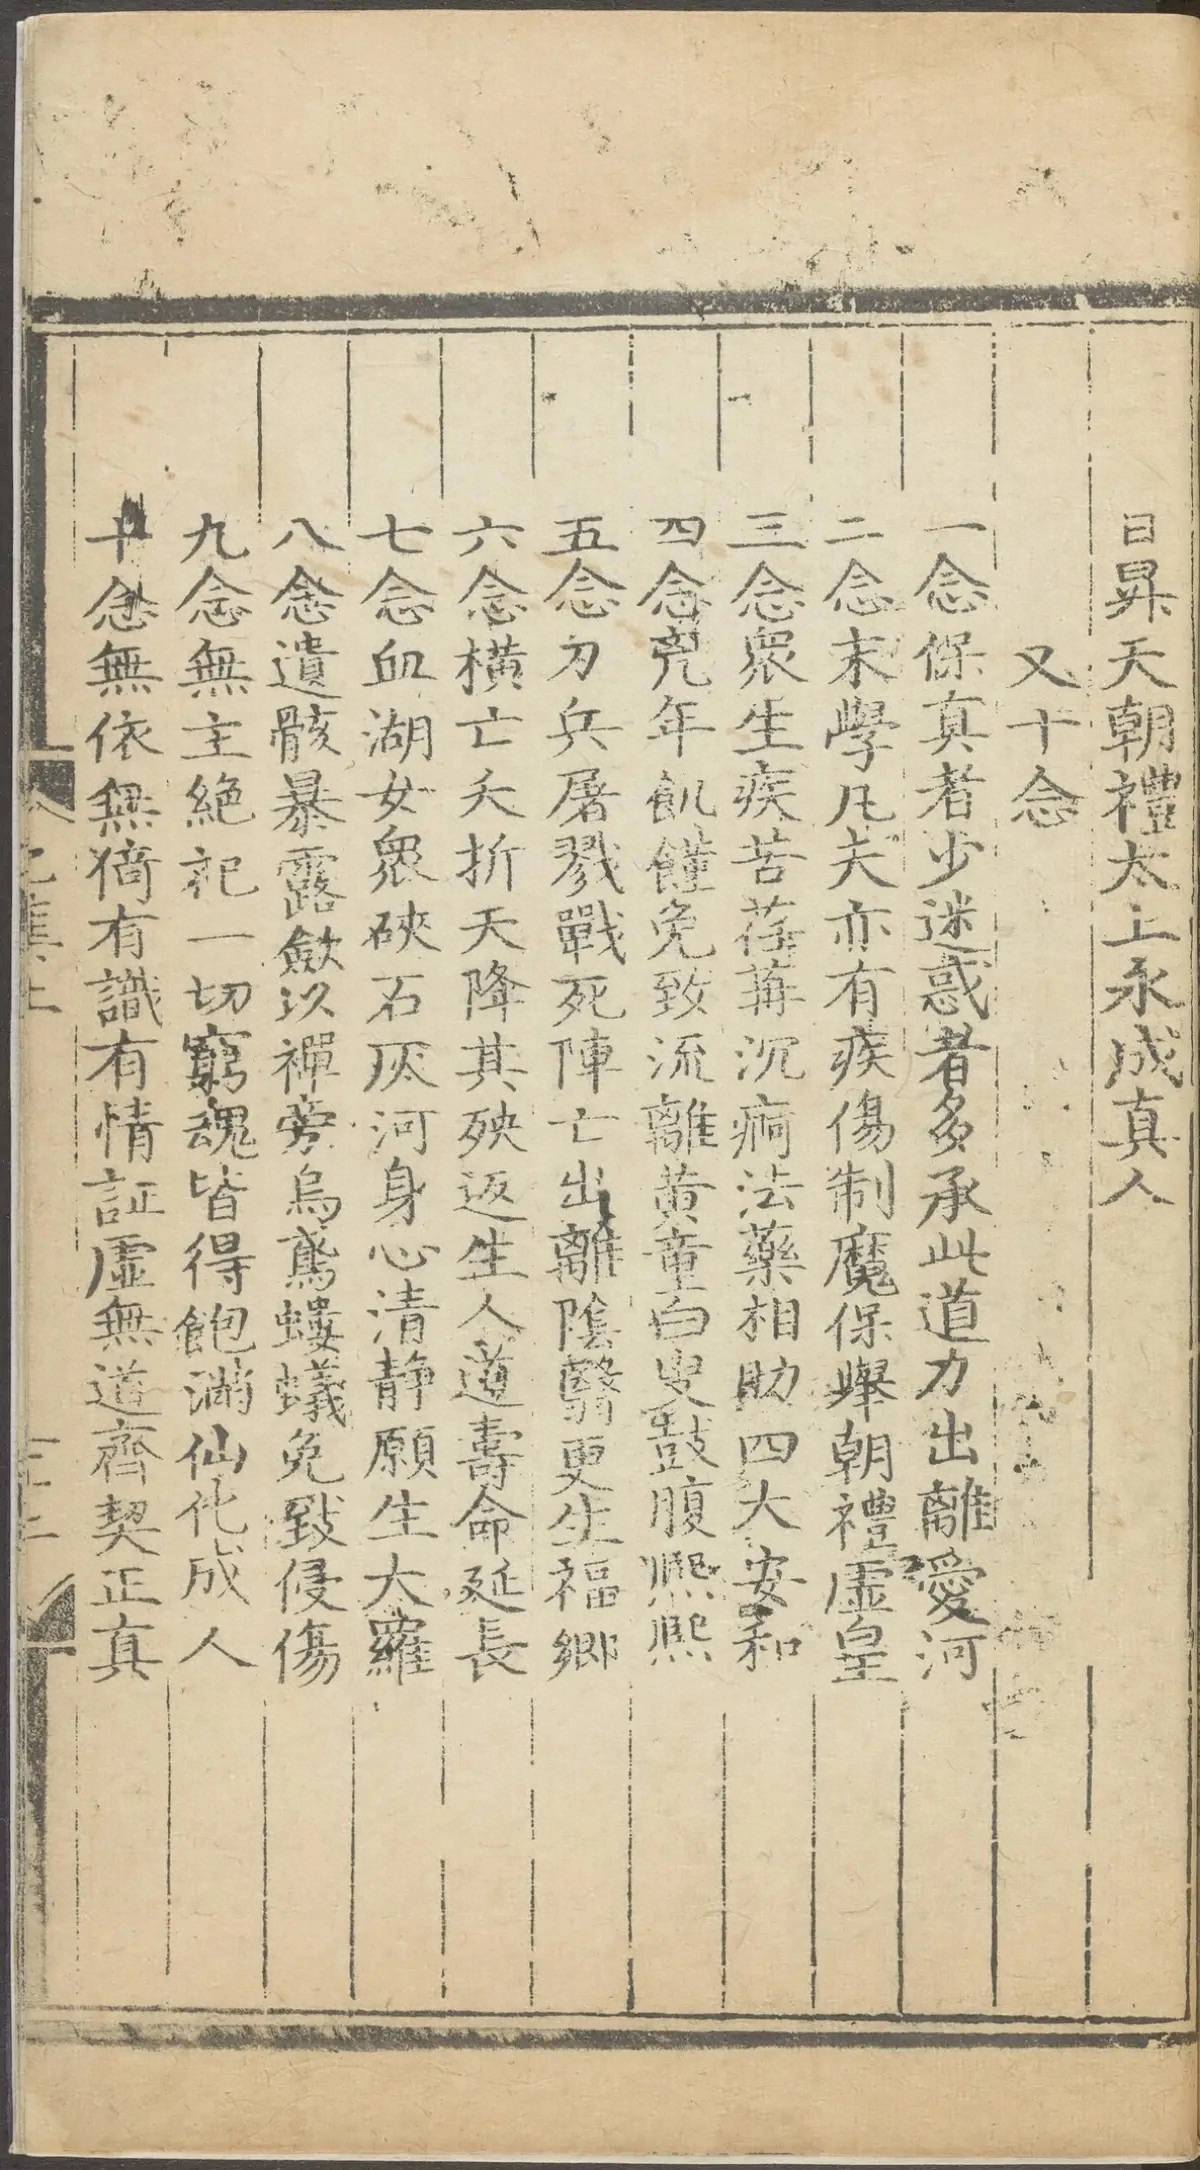 日昇天朝禮太上永成真人
又十念
一念保真者少迷惑者多承此道力出離愛河
二念末學凡夫亦有疾傷制魔保舉朝禮虛皇
三念眾生疾苦荏苒沉痾法藥相助四大安和
四念兇年飢饉免致流離黄童白叟鼓腹熈熈
五念刀兵屠戮戰死陣亡出離陰翳更生福鄉
六念橫亡夭折天降其殃返生人道壽命延長
七念血湖女眾硤石灰河身心清静願生大羅
八念遺骸暴露歛以禪旁烏鳶螻蟻免致侵傷
九念無主絶祀一切窮魂皆得飽满仙化成人
十念無依無倚有識有情証虛無道齊契正真